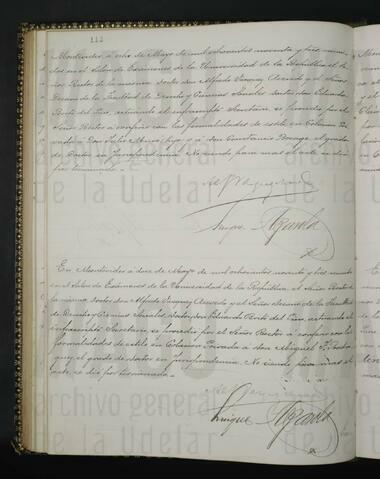 112
Montevideo a ocho de Mayo de mil ochocientos noventa y tres, reuni-
dos en el Salon de Exámenes de la Universidad de la República el Se-
ñor Rector de la misma doctor don Alfredo Vasquez Acevedo y el Señor
Decano de la Facultad de Derecho y Ciencias Sociales doctor don Eduardo
Brito del Pino, actuando el infrascripto Secretario, se procedió por el
Señor Rector a conferir con las formalidades de estilo en Colacion Pri-
vada a Don Julio Muró hijo y a don Constancio el grado
de Doctor en Jurisprudencia. No siendo para mas el acto se dió
por terminado.
Enrique Azarola
En Montevideo a doce de Mayo de mil ochocientos noventa y tres, reunidos
en el Salon de Exámenes de la Universidad de la República, el Señor Rector de
la misma doctor don Alfredo Vasquez Acevedo y el Señor Decano de la Facultad
de Derecho y Ciencias Sociales, doctor don Eduardo Brito del Pino, actuando el
infrascripto Secretario, se procedió por el Señor Rector a conferir con las
formalidades de estilo en Colacion Privada a don Miguel V.
el grado de doctor en Jurisprudencia. No siendo para mas el
acto, se dió por terminado.
Enrique Azarola
archivo general
de la Udelar
archivo general
de la Udelar